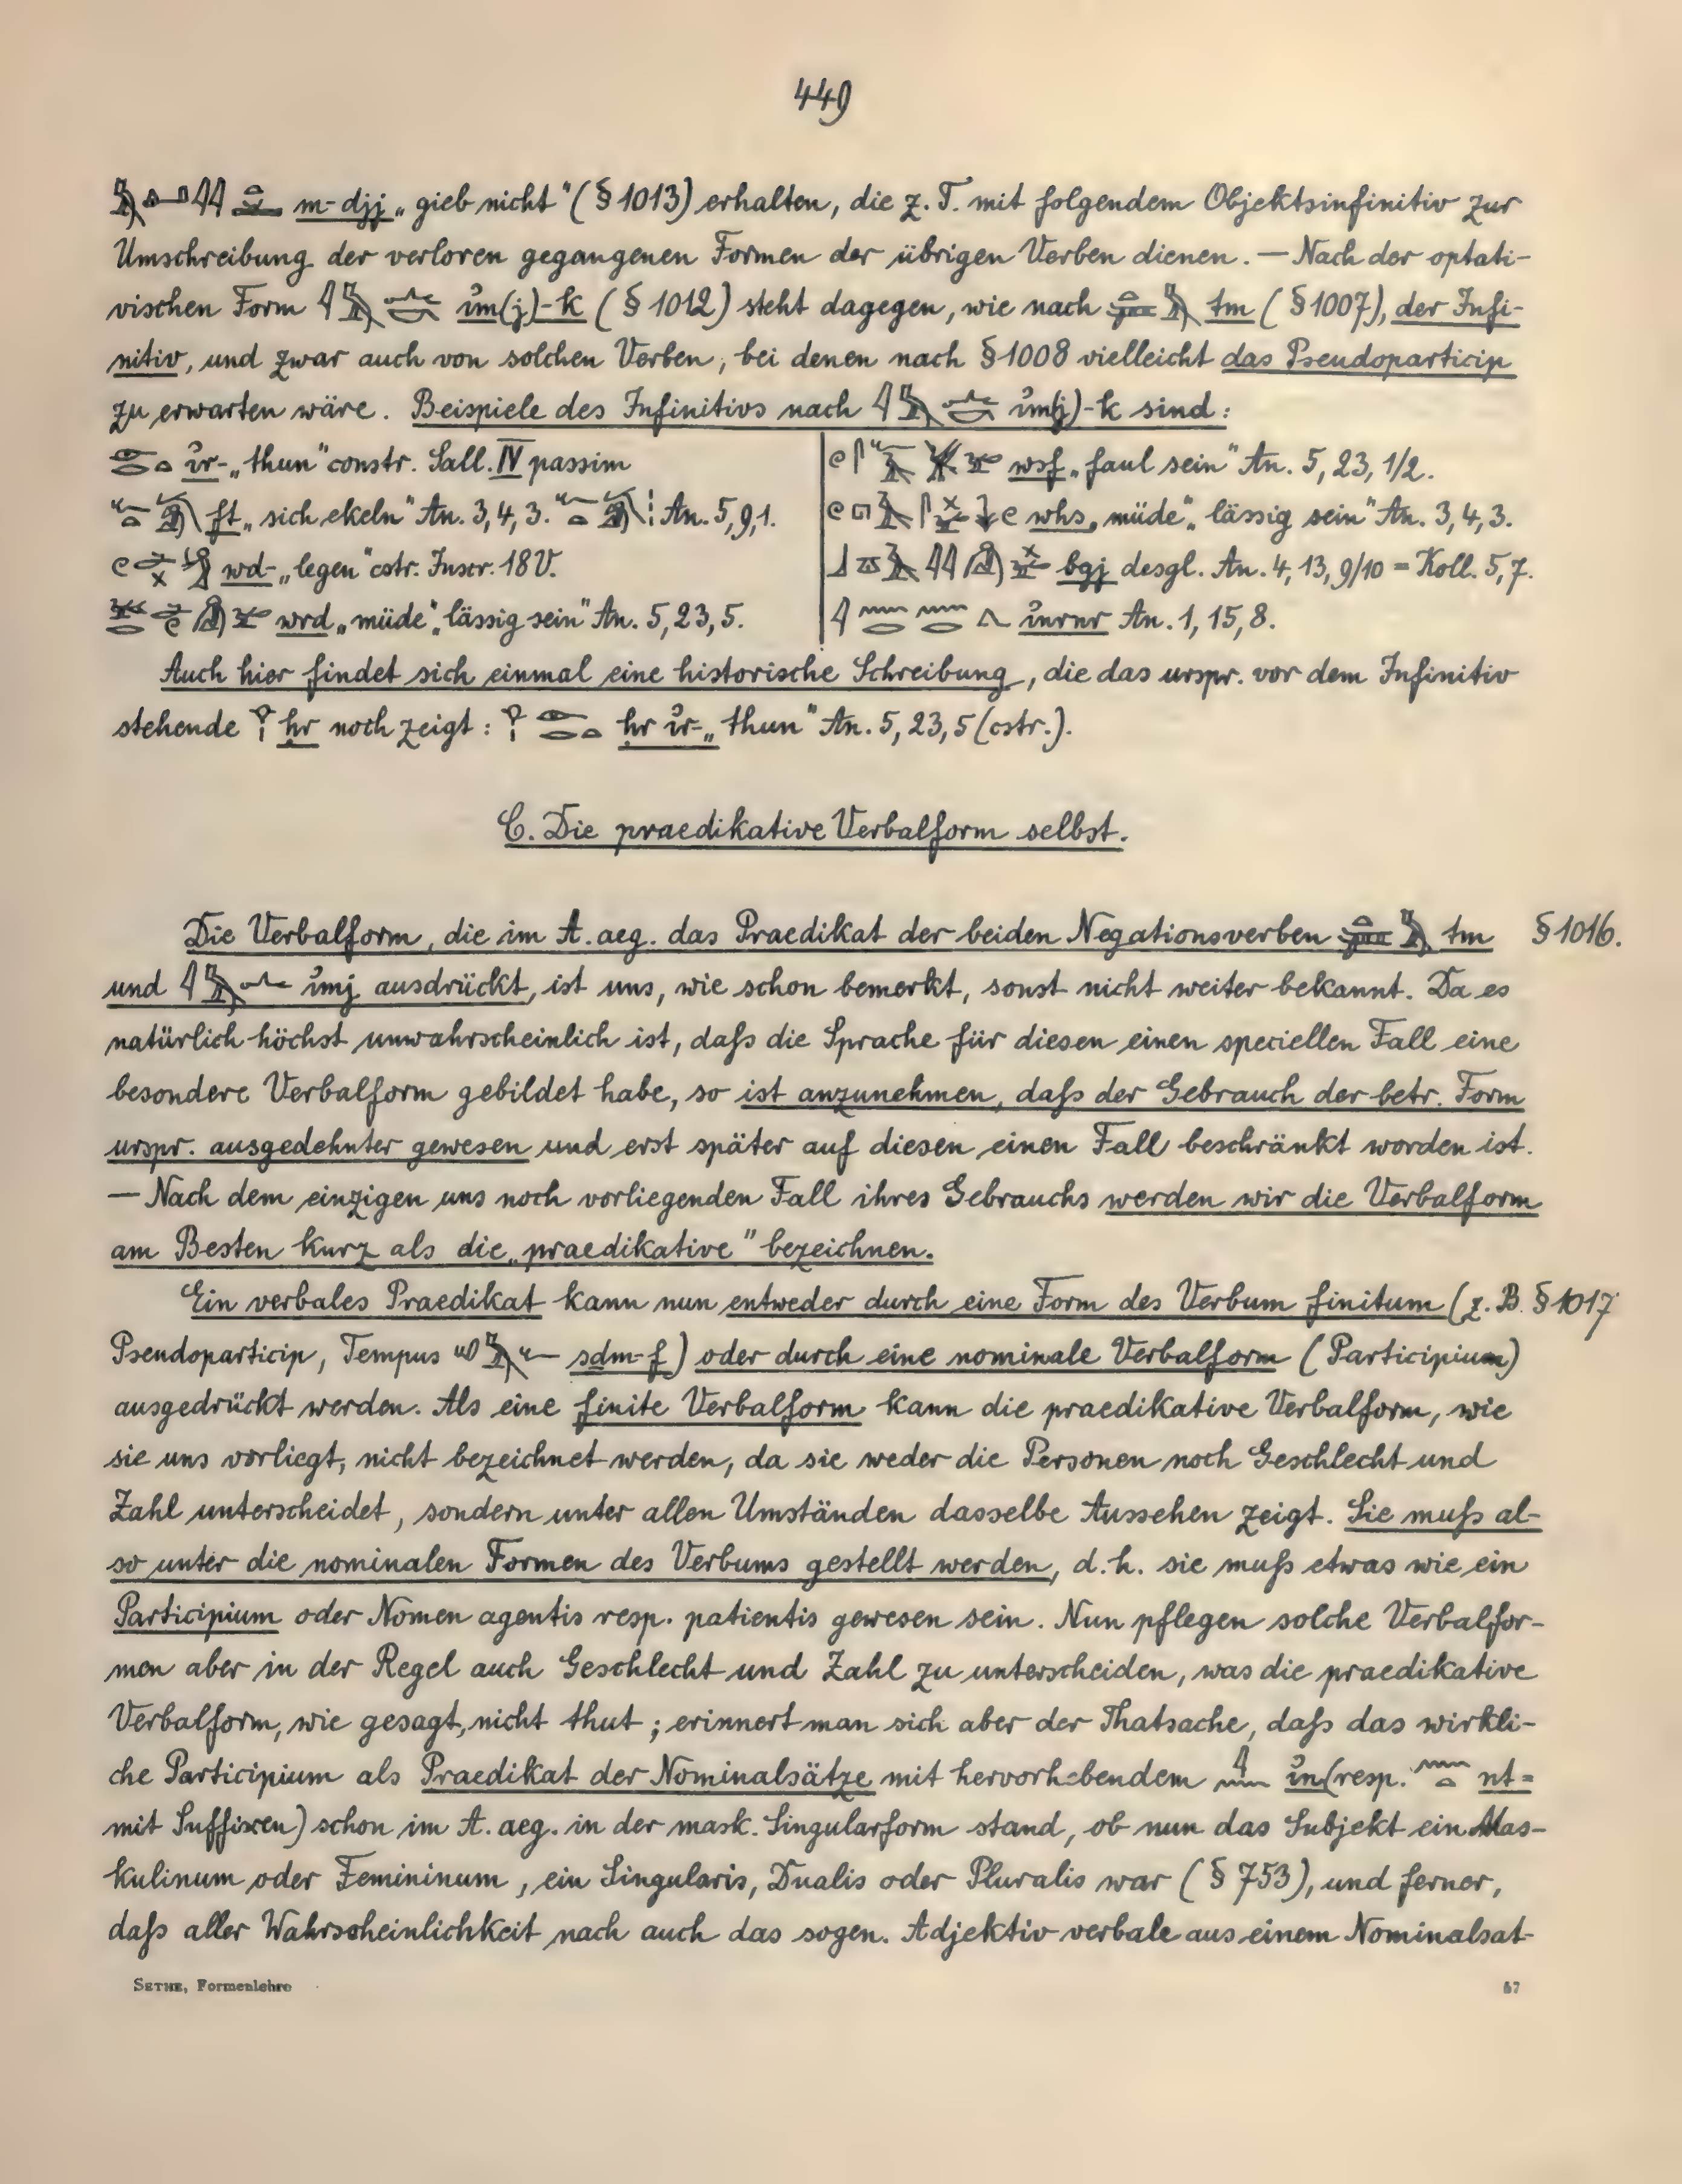 449
m-djj „gieb nicht" (§ 1013) erhalten, die z. T. mit folgendem Objektsinfinitiv zur
Umschreibung der verloren gegangenen Formen der übrigen Verben dienen. — Nach der optati-
vischen Form im(j)-k (§ 1012) steht dagegen, wie nach tm (§ 1007), der Infi-
nitiv, und zwar auch von solchen Verben, bei denen nach § 1008 vielleicht das Pseudoparticip
zu erwarten wäre. Beispiele des Infinitivs nach im(j)-k sind:
ir- „thun" constr. Sall. IV passim
ft „sich ekeln" An. 3,4,3. An. 5,9,1.
wd- „legen" cstr. Inscr. 18 V.
wrd „müde", „lässig sein" An. 5,23,5.
wsf „faul sein" An. 5, 23, 1/2.
whs „müde", „lässig sein" An. 3,4,3.
bgj desgl. An. 4, 13, 9/10 = Koll. 5,7.
inrnr An. 1, 15, 8.
Auch hier findet sich einmal eine historische Schreibung, die das urspr. vor dem Infinitiv
stehende ḥr noch zeigt: ḥr ir- „thun" An. 5, 23, 5 (cstr.).
C. Die praedikative Verbalform selbst.
Die Verbalform, die im A. aeg. das Praedikat der beiden Negationsverben tm § 1016.
und imj ausdrückt, ist uns, wie schon bemerkt, sonst nicht weiter bekannt. Da es
natürlich höchst unwahrscheinlich ist, daß die Sprache für diesen einen speciellen Fall eine
besondere Verbalform gebildet habe, so ist anzunehmen, daß der Gebrauch der betr. Form
urspr. ausgedehnter gewesen und erst später auf diesen einen Fall beschränkt worden ist.
— Nach dem einzigen uns noch vorliegenden Fall ihres Gebrauchs werden wir die Verbalform
am Besten kurz als die „praedikative" bezeichnen.
Ein verbales Praedikat kann nun entweder durch eine Form des Verbum finitum (z. B. § 1017
Pseudoparticip, Tempus sdm-f) oder durch eine nominale Verbalform (Participium)
ausgedrückt werden. Als eine finite Verbalform kann die praedikative Verbalform, wie
sie uns vorliegt, nicht bezeichnet werden, da sie weder die Personen noch Geschlecht und
Zahl unterscheidet, sondern unter allen Umständen dasselbe Aussehen zeigt. Sie muß al-
so unter die nominalen Formen des Verbums gestellt werden, d. h. sie muß etwas wie ein
Participium oder Nomen agentis resp. patientis gewesen sein. Nun pflegen solche Verbalfor-
men aber in der Regel auch Geschlecht und Zahl zu unterscheiden, was die praedikative
Verbalform, wie gesagt, nicht thut; erinnert man sich aber der Thatsache, daß das wirkli-
che Participium als Praedikat der Nominalsätze mit hervorhebendem in (resp. nt=
mit Suffixen) schon im A. aeg. in der mask. Singularform stand, ob nun das Subjekt ein Mas-
kulinum oder Femininum, ein Singularis, Dualis oder Pluralis war (§ 753), und ferner,
daß aller Wahrscheinlichkeit nach auch das sogen. Adjektiv verbale aus einem Nominalsat-
SETHE, Formenlehre 57